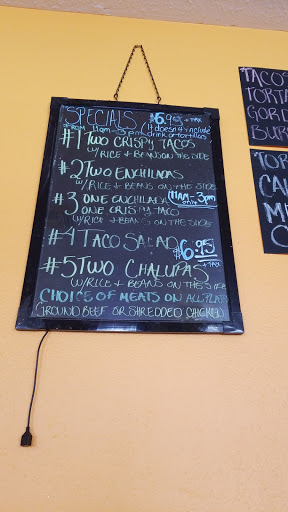 SPECIALS $6.95 + TAX
FROM 11am-3pm (It doesn't include
drink or tortillas
#1 TWO CRISPY TACOS
W/RICE + BEANS ON THE SIDE
#2 TWO ENCHILADAS
W/RICE + BEANS ON THE SIDE
11AM-3pm
ONLY
#3 ONE ENCHILADA
ONE CRISPY TACO
W/RICE + BEANS ON THE SIDE
#4 TACO SALAD $6.95
+ TAX
#5 TWO CHALUPAS
W/RICE + BEANS ON THE SIDE
CHOICE OF MEATS ON ALL PLATES
(GROUND BEEF OR SHREDDED CHICKEN)
TACOS
TORTA
GORD
BUR
TOR
CA
M
C